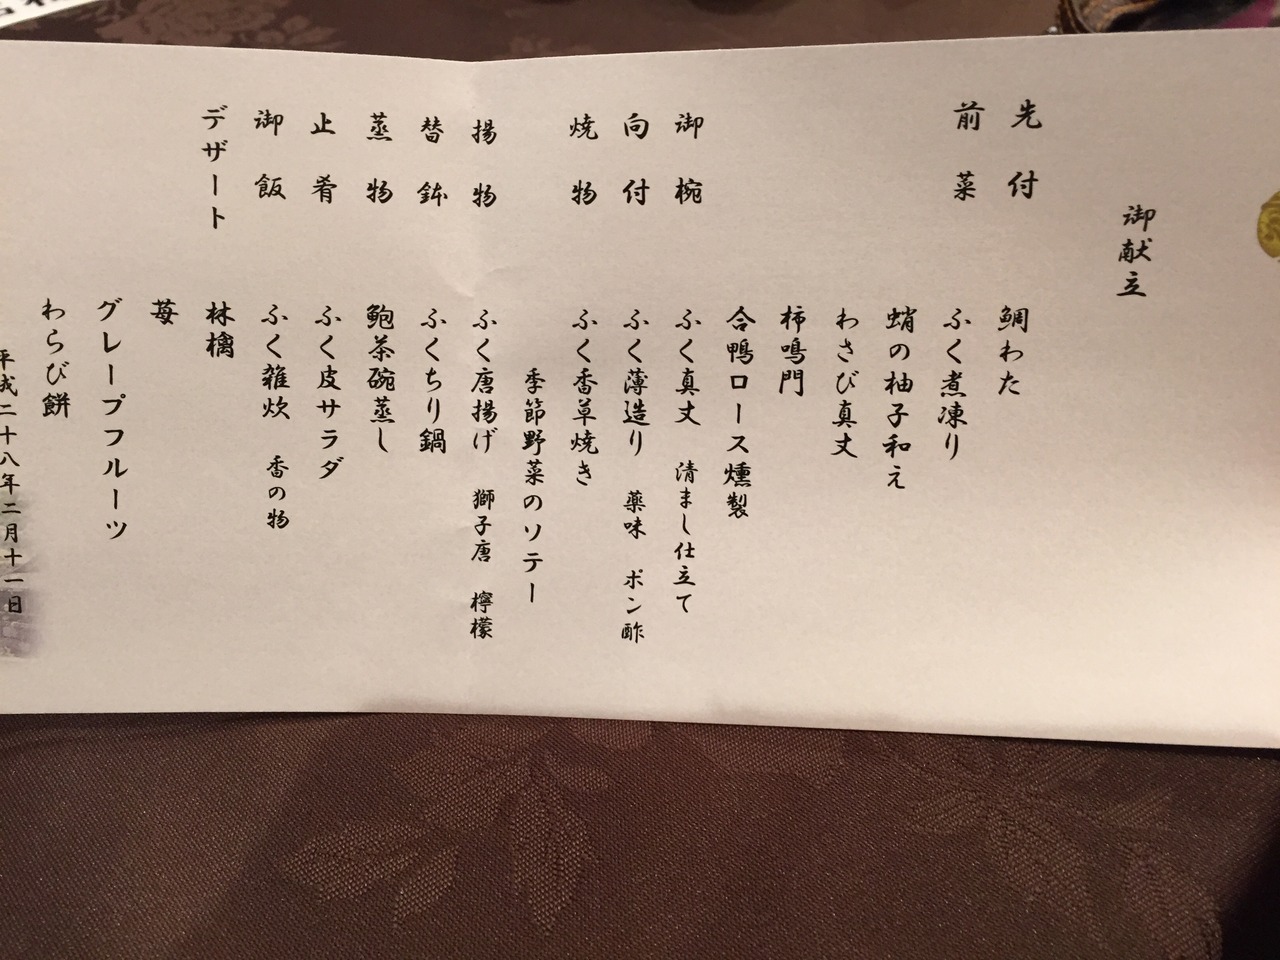 御献立
先付　鯛わた
前菜　ふく煮凍り
蛸の柚子和え
わさび真丈
柿鳴門
合鴨ロース燻製
御椀　ふく真丈　清まし仕立て
向付　ふく薄造り　薬味　ポン酢
焼物　ふく香草焼き
季節野菜のソテー
揚物　ふく唐揚げ　獅子唐　檸檬
替鉢　ふくちり鍋
蒸物　鮑茶碗蒸し
止肴　ふく皮サラダ
御飯　ふく雑炊　香の物
デザート　林檎
苺
グレープフルーツ
わらび餅
平成二十八年二月十一日